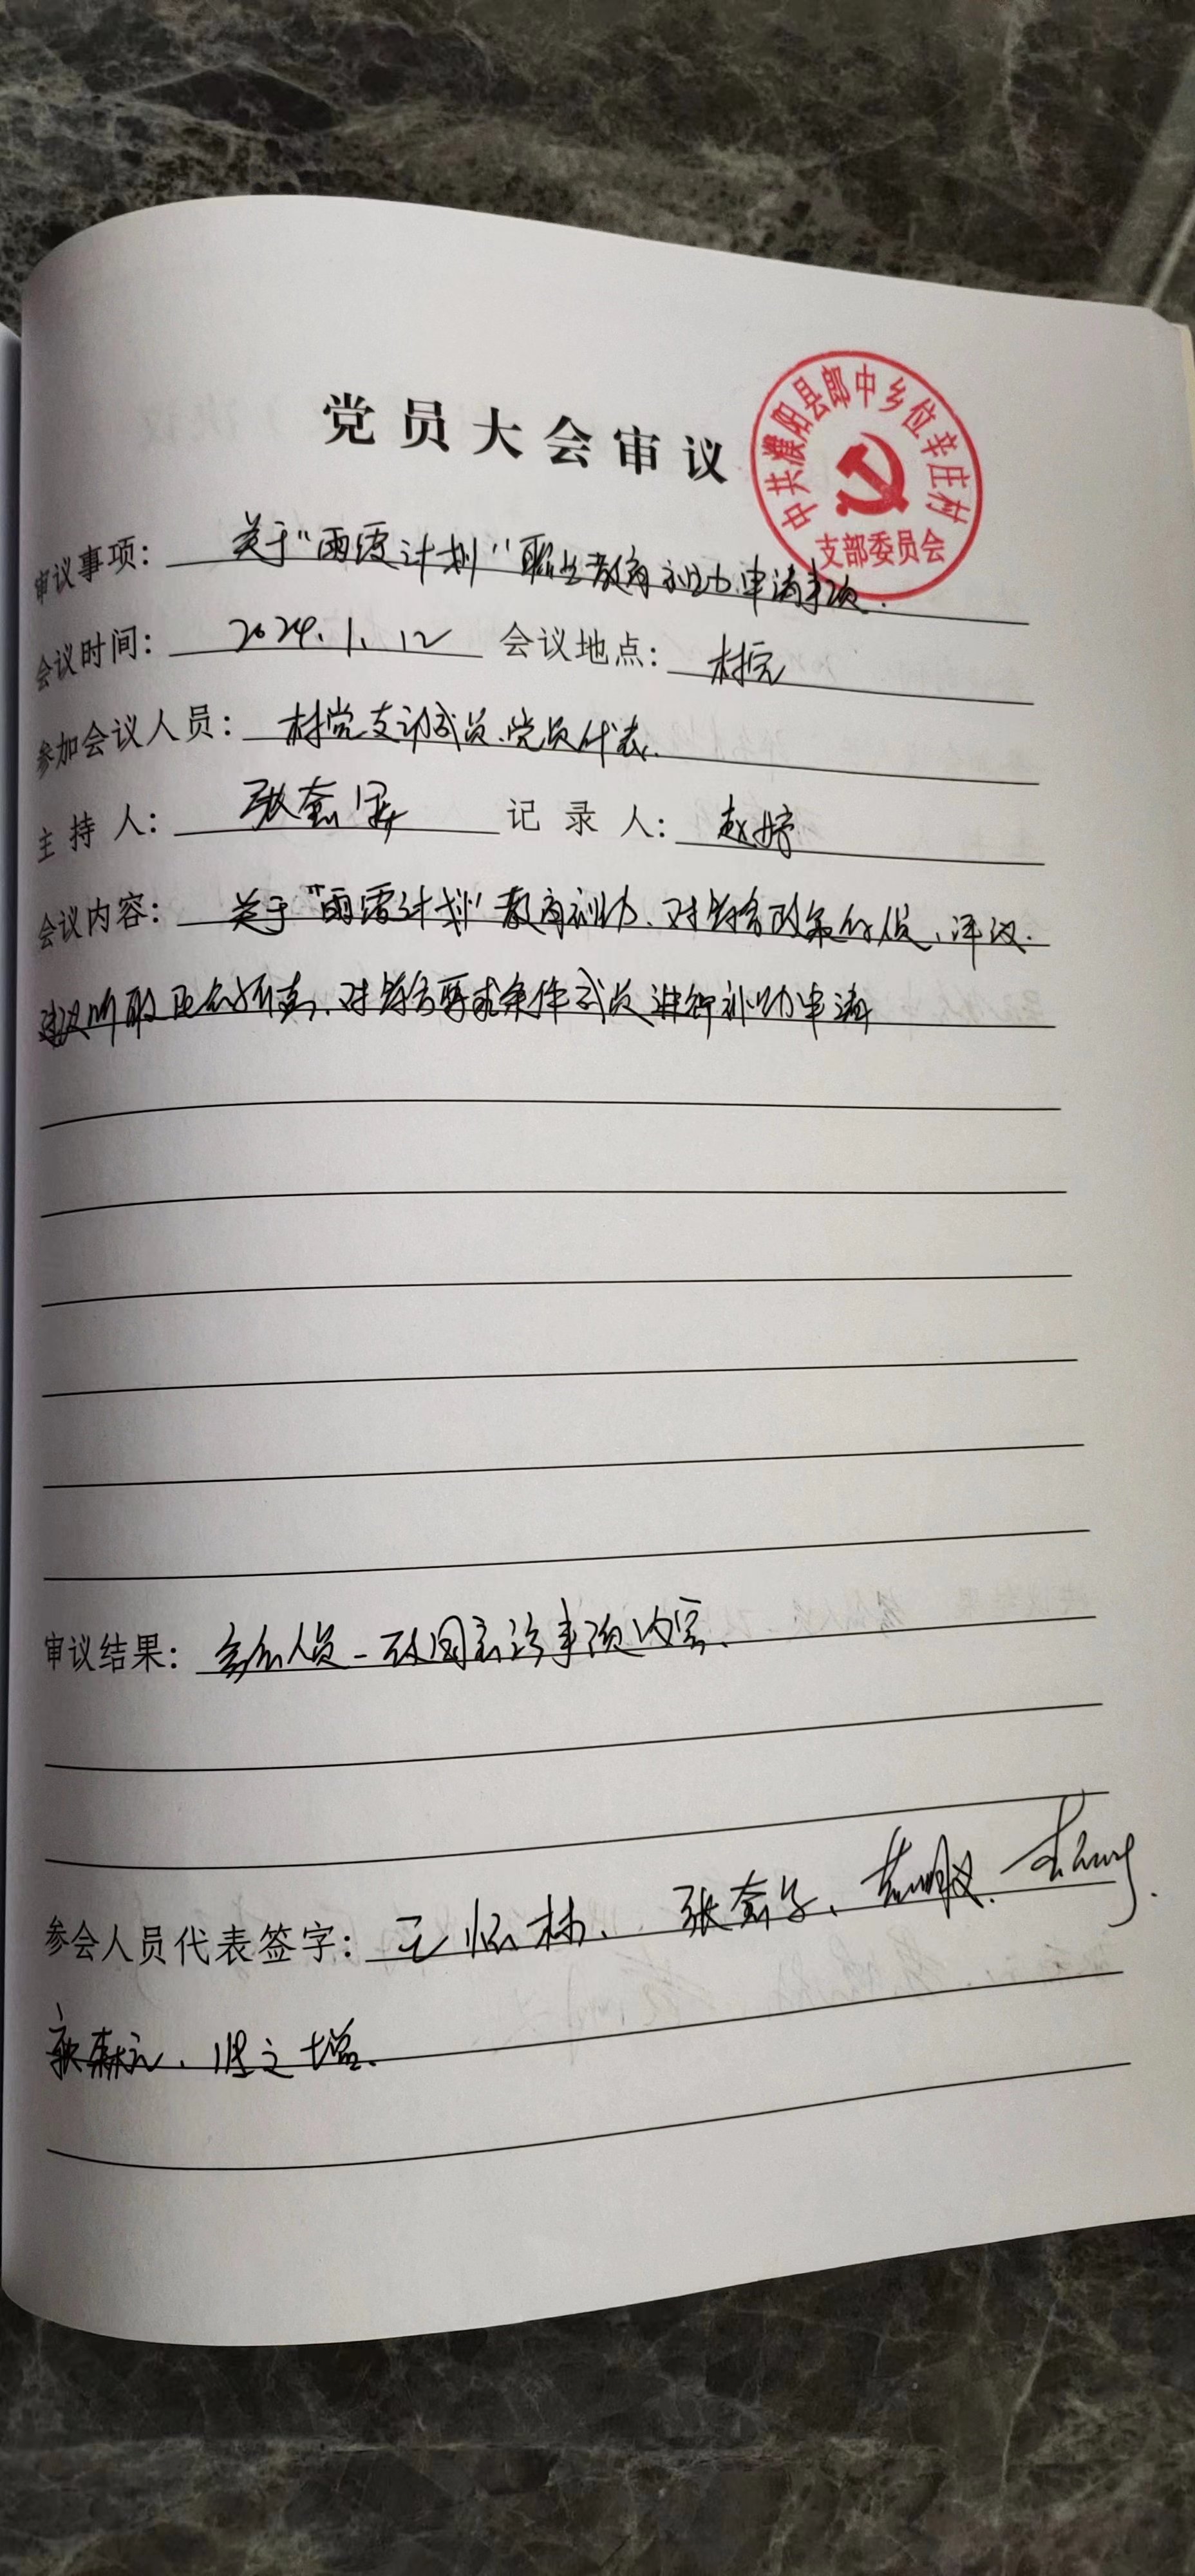 党员大会审议
中共濮阳县郎中乡位辛庄村
支部委员会
审议事项：关于“雨露计划”职业教育补助申请事项.
会议时间：2024.1.12 会议地点：村室
参加会议人员：村党支部成员、党员代表.
主持人：张 记录人：赵婷
会议内容：关于“雨露计划”教育补助、对符合政条件人员、评议.
建议听取 对符合要求条件成员进行补助申请
审议结果：参会人员一致同意该事项内容.
参会人员代表签字：王怀林、张